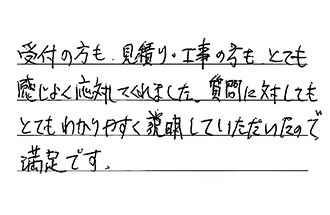 受付の方も、見積り・工事の方も、とても
感じよく応対してくれました。質問に対しても
とてもわかりやすく説明していただいたので
満足です。